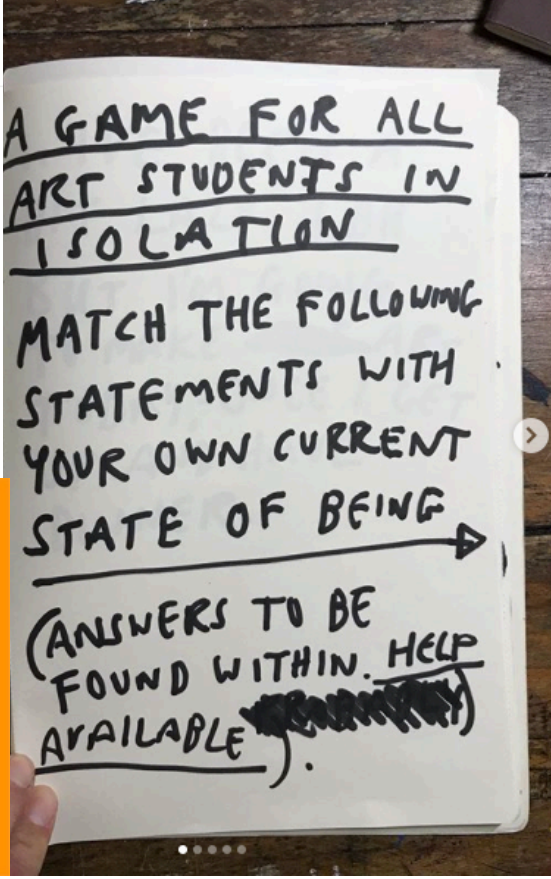 A GAME FOR ALL
ART STUDENTS IN
ISOLATION
MATCH THE FOLLOWING
STATEMENTS WITH
YOUR OWN CURRENT
STATE OF BEING
(ANSWERS TO BE
FOUND WITHIN. HELP
AVAILABLE ).